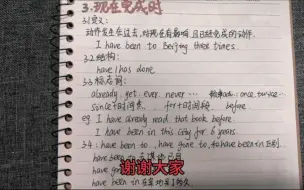 3.现在完成时
3.1定义:
动作发生在过去,对现在有影响且已经完成的动作.
I have been to Beijing three times.
3.2.结构:
have/has done.
3.3.标志词:
already. yet. ever. never ... once. twice...
since+时间点. for+时间段. before.
eg. I have already read that book before.
I have been in this city for 6 years.
3.4: have been to, have gone to, 和have been in区别.
have been to
have gone
have been in
谢谢大家